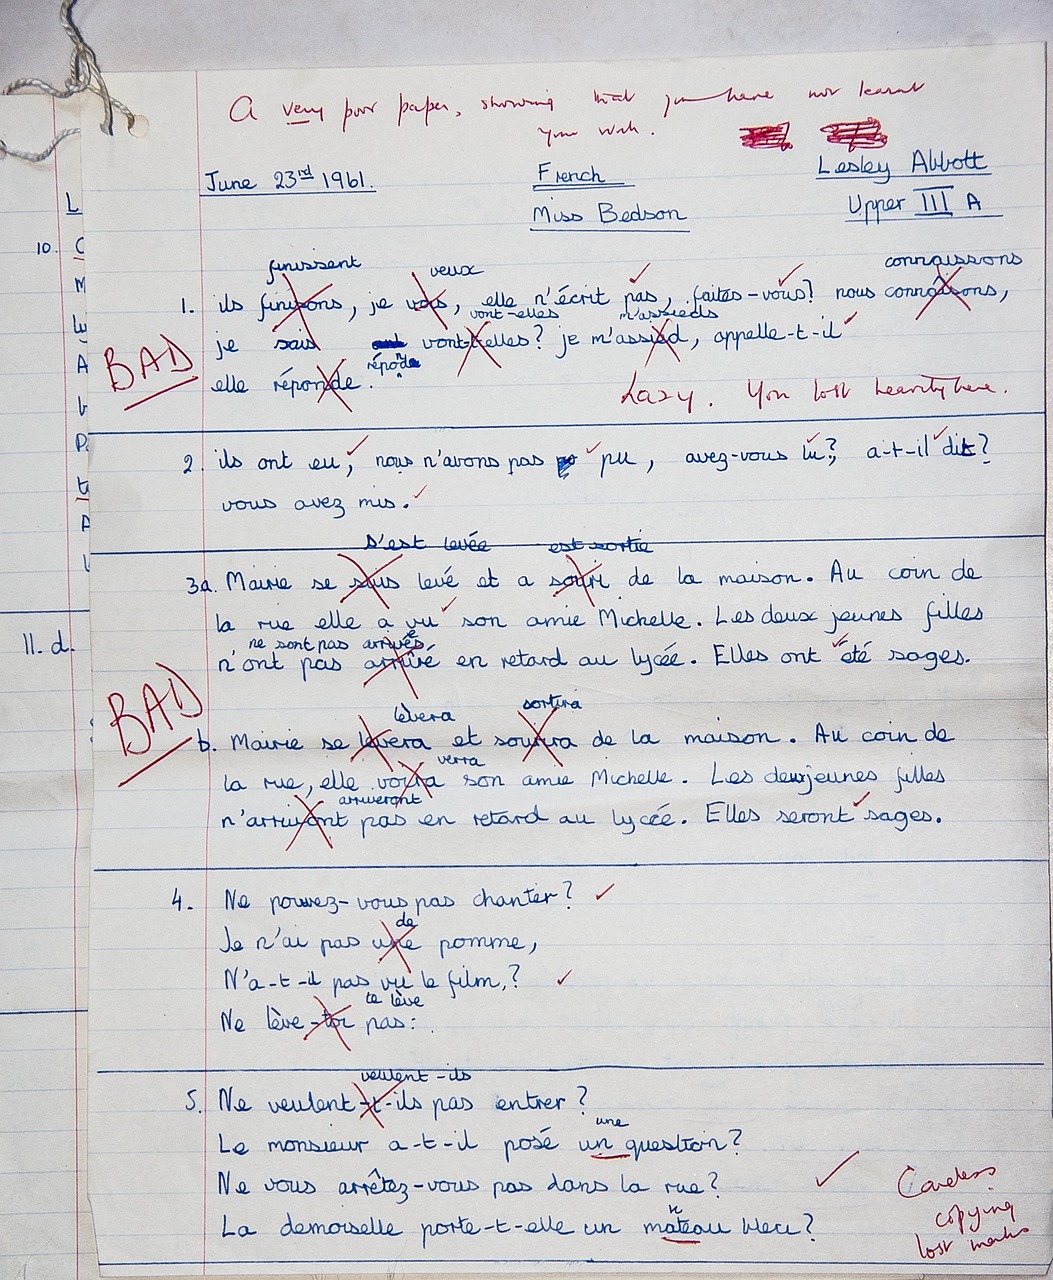 A very poor paper, showing that you have not learnt
your work.
June 23rd 1961.
French
Lesley Abbott
Miss Bedson
Upper III A
L
10.
C
M
A
P
t
A
11. d.
finissent veux connaissons
1. ils finisons, je vois, elle n'écrit pas, faites-vous? nous connaisons,
vont-elles m'assieds
BAD
je sais vont-t-elles? je m'assied, appelle-t-il
réponde
elle réponde.
Lazy. You lost heavily here.
2. ils ont eu, nous n'avons pas pu, avez-vous lu?, a-t-il dit?
vous avez mis.
s'est levée est sortie
3a. Mairie se suis levé et a souri de la maison. Au coin de
la rue elle a vu son amie Michelle. Les deux jeunes filles
ne sont pas arrivées
n'ont pas arrivé en retard au lycée. Elles ont été sages.
BAD
lèvera sortira
b. Mairie se levera et sourira de la maison. Au coin de
verra
la rue, elle voira son amie Michelle. Les deux jeunes filles
arriveront
n'arrivont pas en retard au lycée. Elles seront sages.
4. Ne pouvez-vous pas chanter?
de
Je n'ai pas une pomme,
N'a-t-il pas vu le film,?
te lève
Ne lève-toi pas:
veulent-ils
5. Ne veulent-t-ils pas entrer?
une
Le monsieur a-t-il posé un question?
Ne vous arrêtez-vous pas dans la rue?
n
La demoiselle porte-t-elle un mateau bleu?
Careless
copying
lost marks